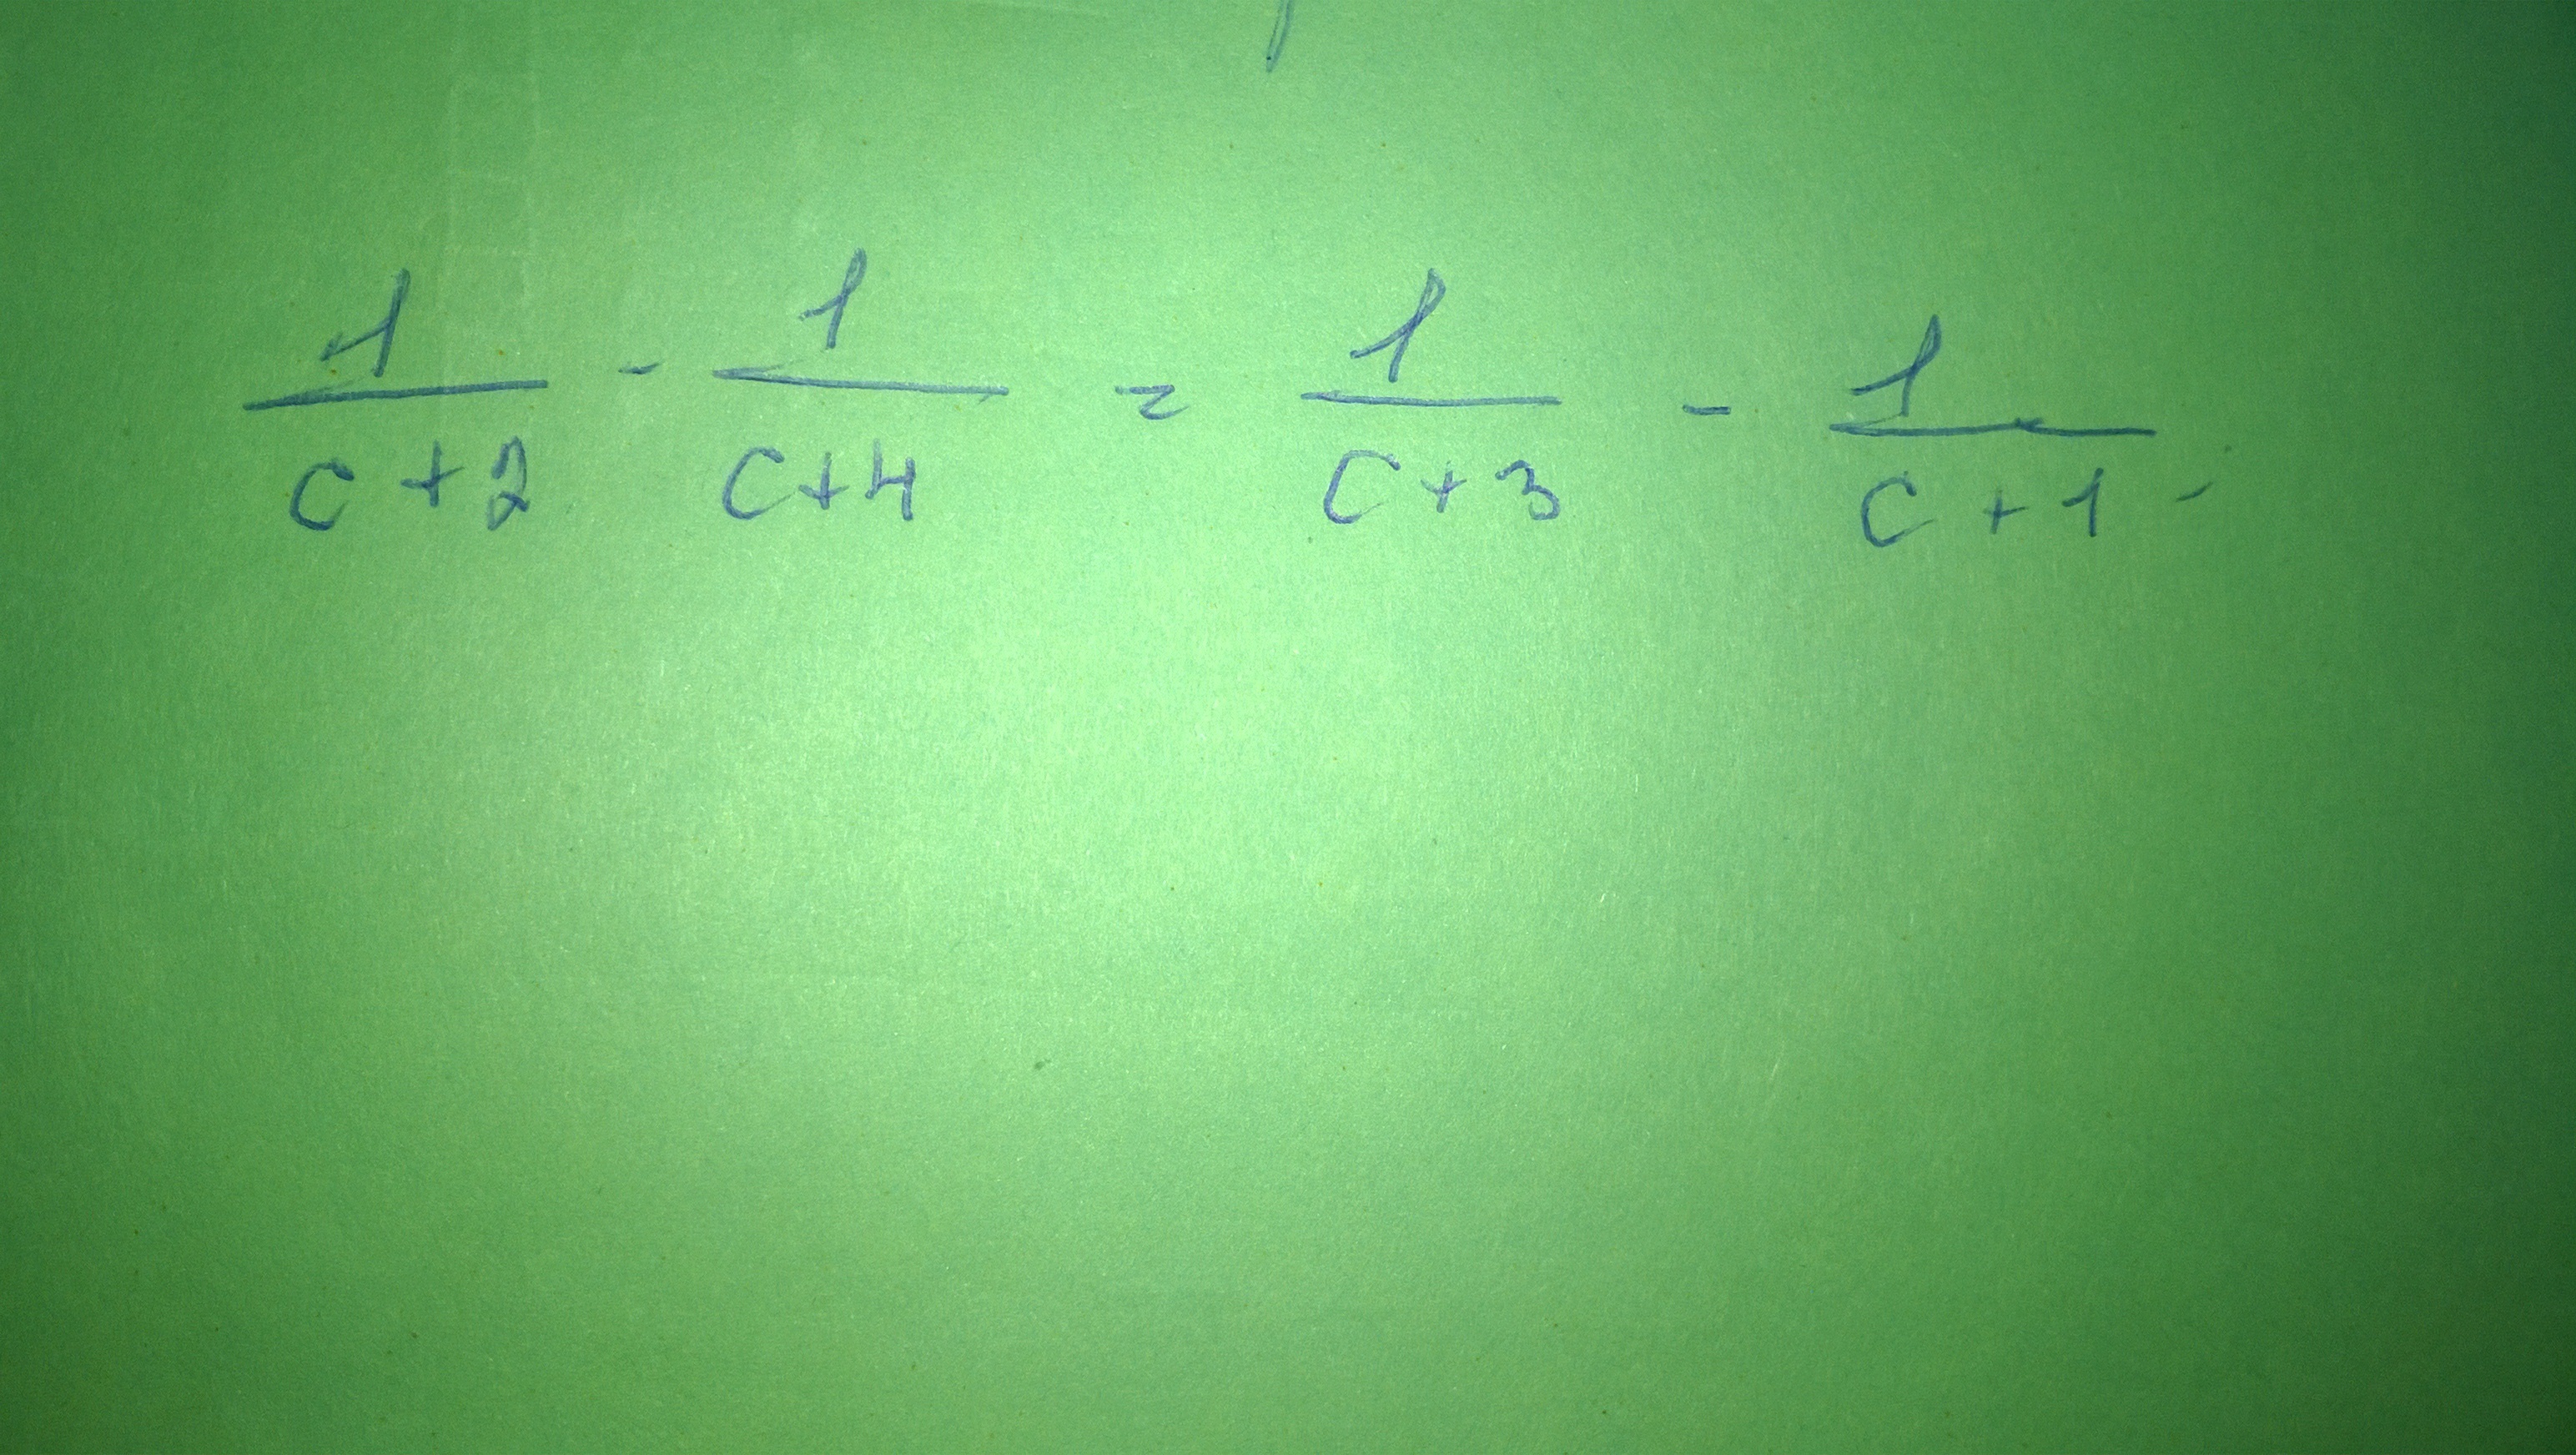 1/(c+2) - 1/(c+4) = 1/(c+3) - 1/(c+1) -